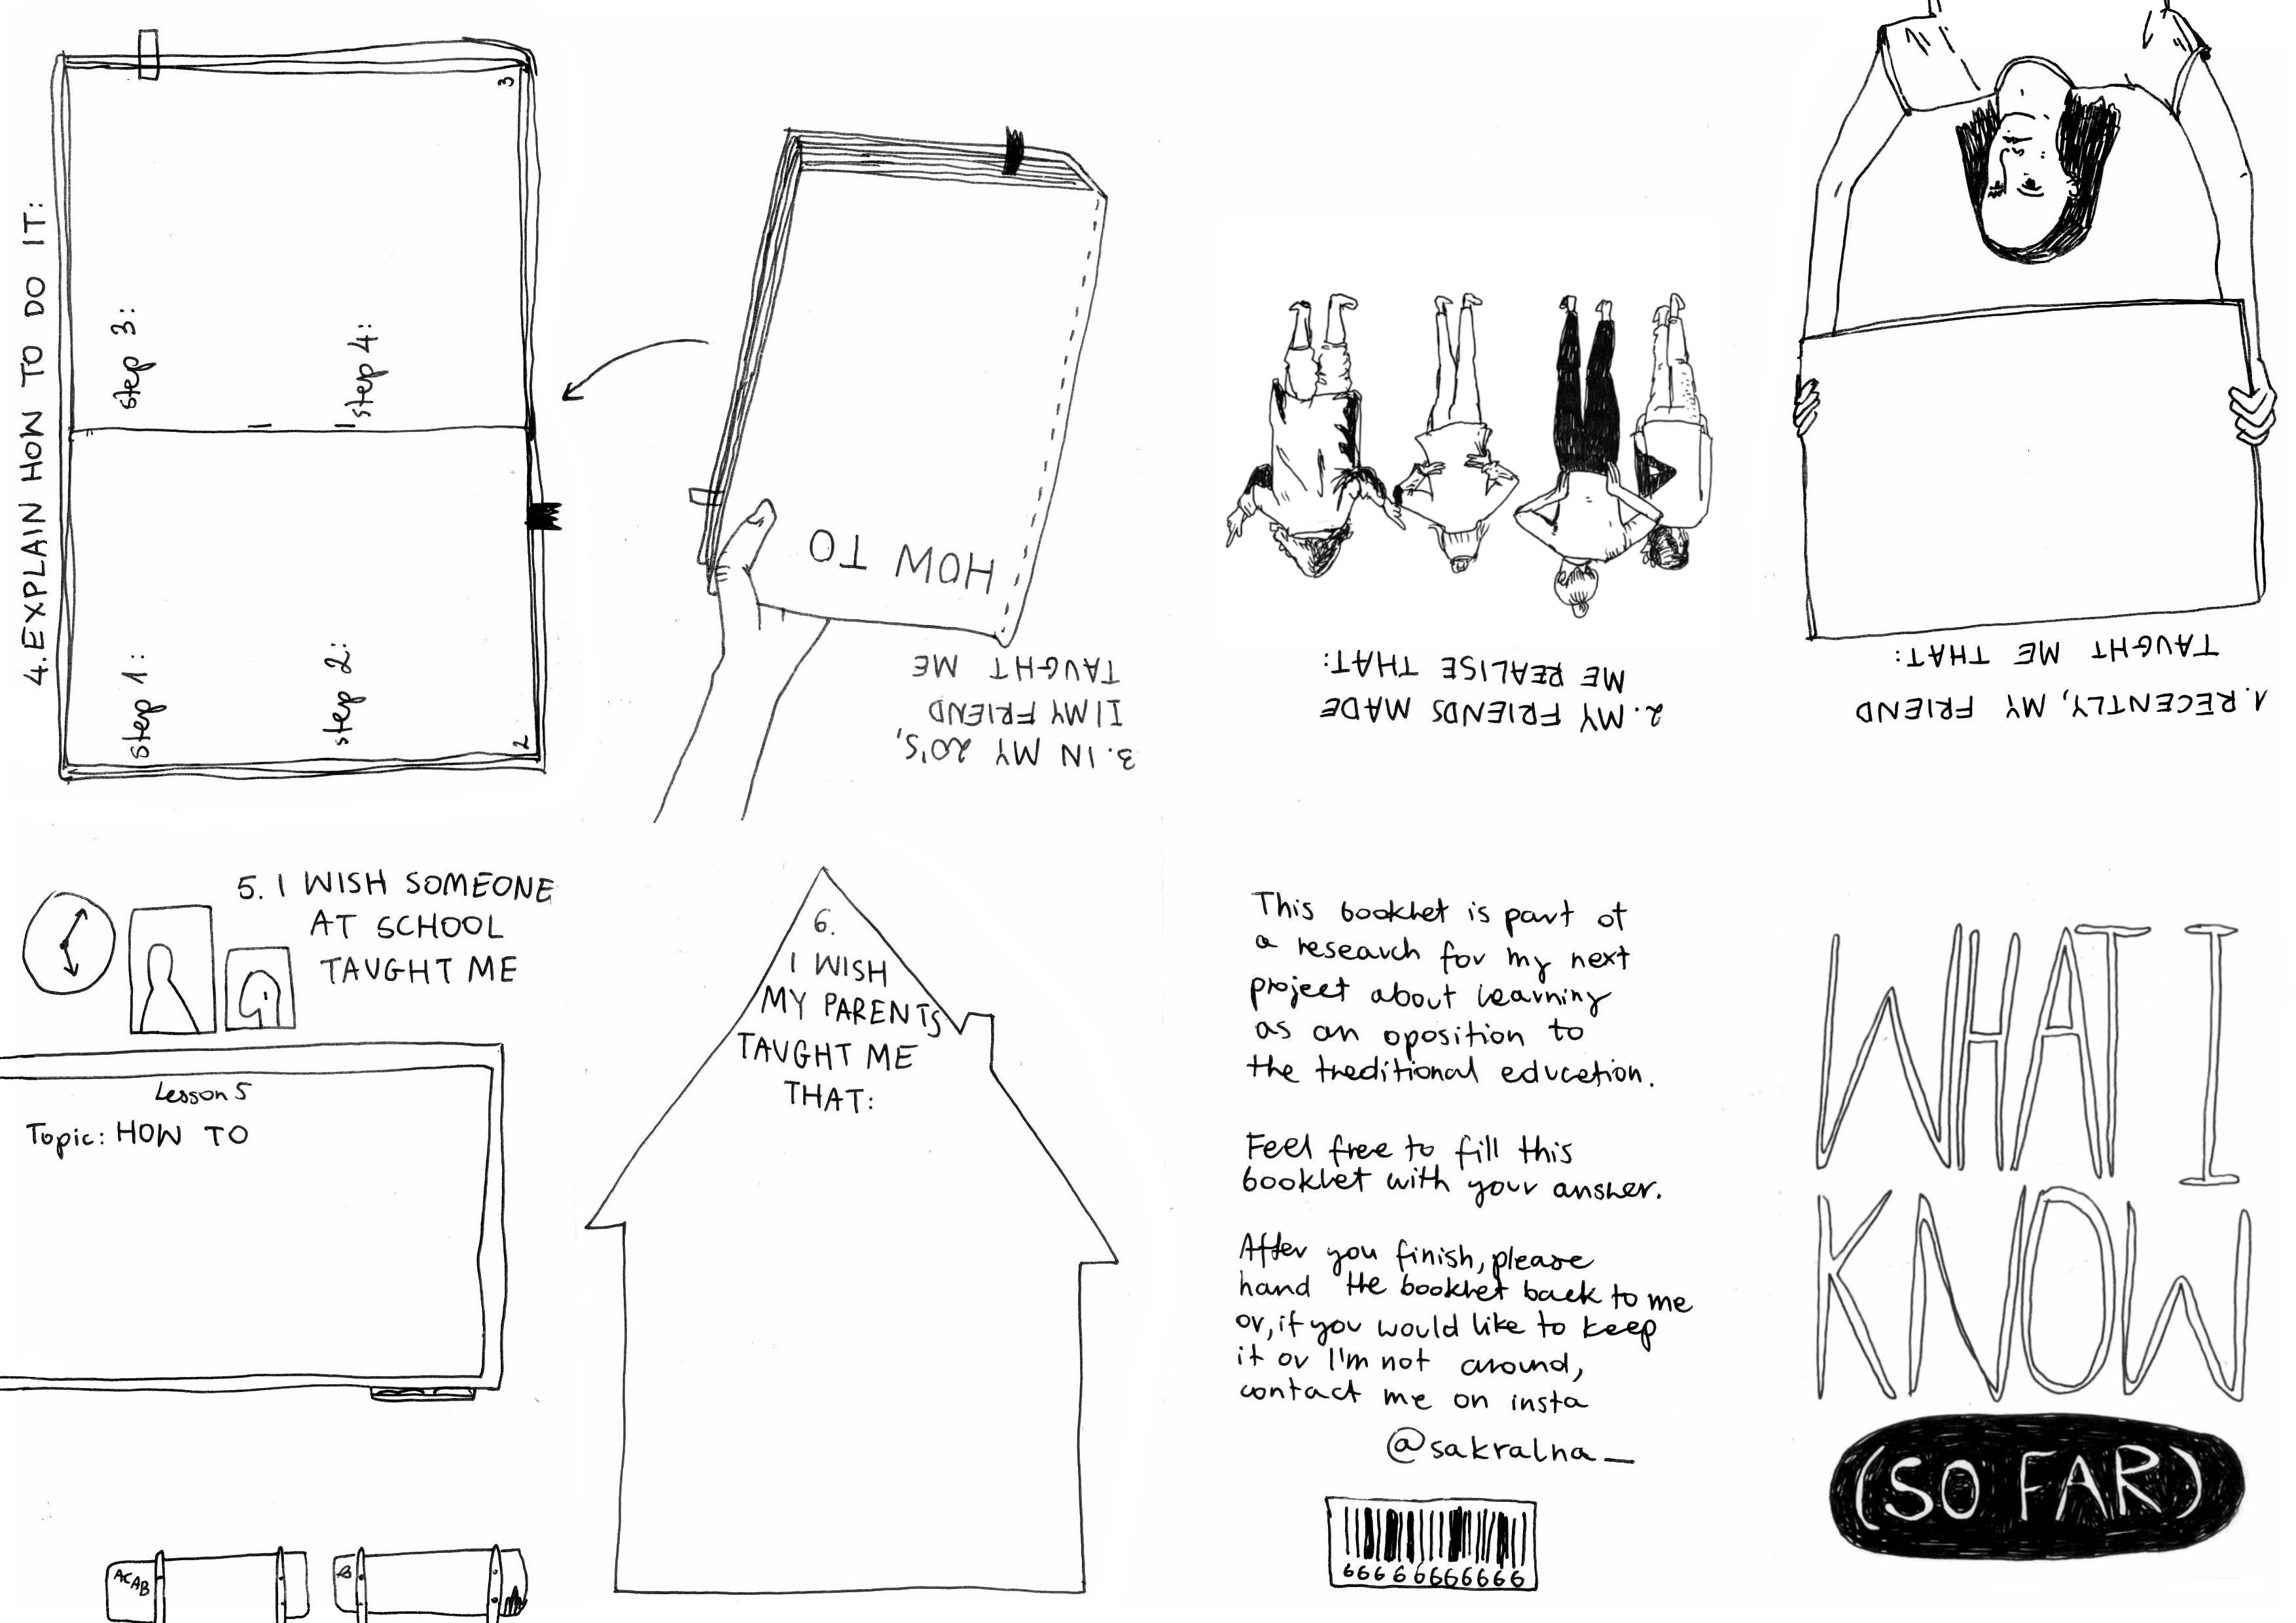 WHAT I
KNOW
(SO FAR)
1. RECENTLY, MY FRIEND
TAUGHT ME THAT:
2. MY FRIENDS MADE
ME REALISE THAT:
3. IN MY 20'S,
MY FRIEND
TAUGHT ME
HOW TO
4. EXPLAIN HOW TO DO IT:
step 1:
step 2:
2
step 3:
step 4:
3
5. I WISH SOMEONE
AT SCHOOL
TAUGHT ME
Lesson 5
Topic: HOW TO
ACAB
6.
I WISH
MY PARENTS
TAUGHT ME
THAT:
This booklet is part of
a research for my next
project about learning
as an oposition to
the traditional education.
Feel free to fill this
booklet with your answer.
After you finish, please
hand the booklet back to me
or, if you would like to keep
it or I'm not around,
contact me on insta
@sakralna_
666666666666